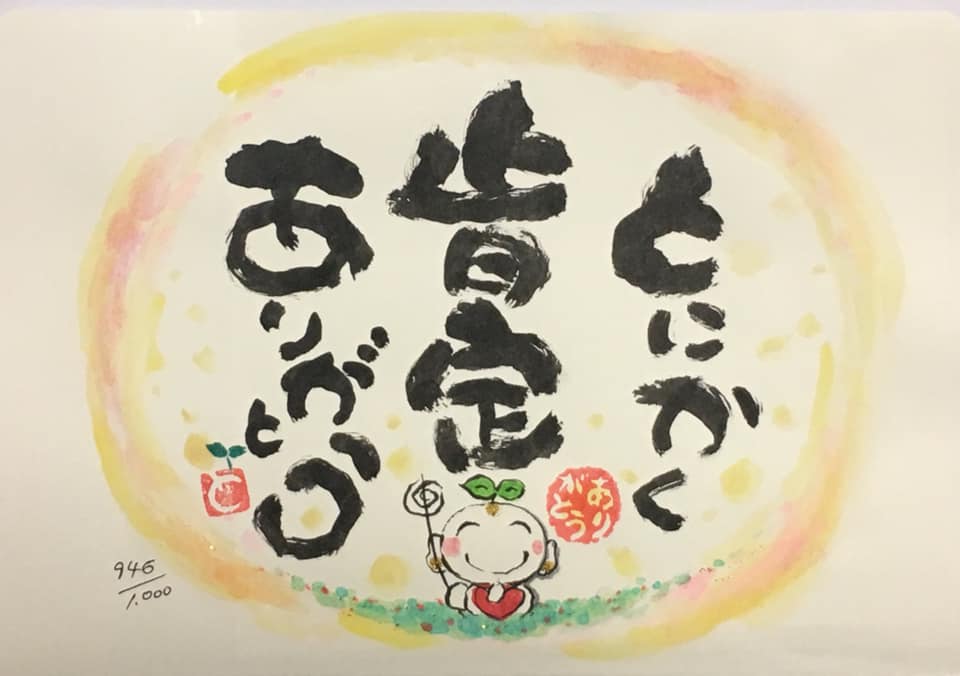 とにかく
肯定
ありがとう
ありがとう
946/1.000